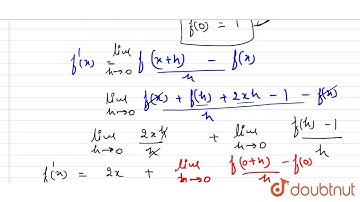 f(0) = 1
f'(x) = lim h→0 f(x+h) - f(x) / h
lim h→0 f(x) + f(h) + 2xh - 1 - f(x) / h
lim h→0 2xh / h + lim h→0 f(h) - 1 / h
f'(x) = 2x + lim h→0 f(0+h) - f(0) / h
doubtnut